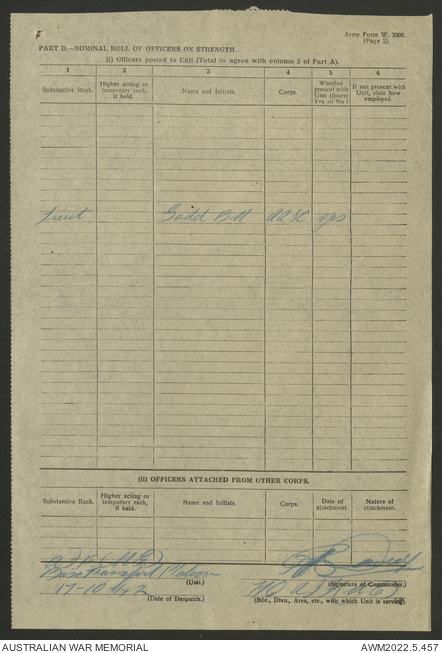 Army Form W. 3008.
(Page 2).
PART D.—NOMINAL ROLL OF OFFICERS ON STRENGTH.
(i) Officers posted to Unit (Total to agree with column 2 of Part A).
1 2 3 4 5 6
Substantive Rank. Higher acting or temporary rank, if held. Name and Initials. Corps. Whether present with Unit (Insert Yes or No) If not present with Unit, state how employed.
Lieut Gadd B.H AASC yes
(ii) OFFICERS ATTACHED FROM OTHER CORPS.
Substantive Rank. Higher acting or temporary rank, if held. Name and Initials. Corps. Date of attachment. Nature of attachment.
Base Transport Platoon
(Unit.)
(Signature of Commander.)
17-10-42
(Date of Despatch.)
(Bde., Divn., Area, etc., with which Unit is serving).
AUSTRALIAN WAR MEMORIAL
AWM2022.5.457